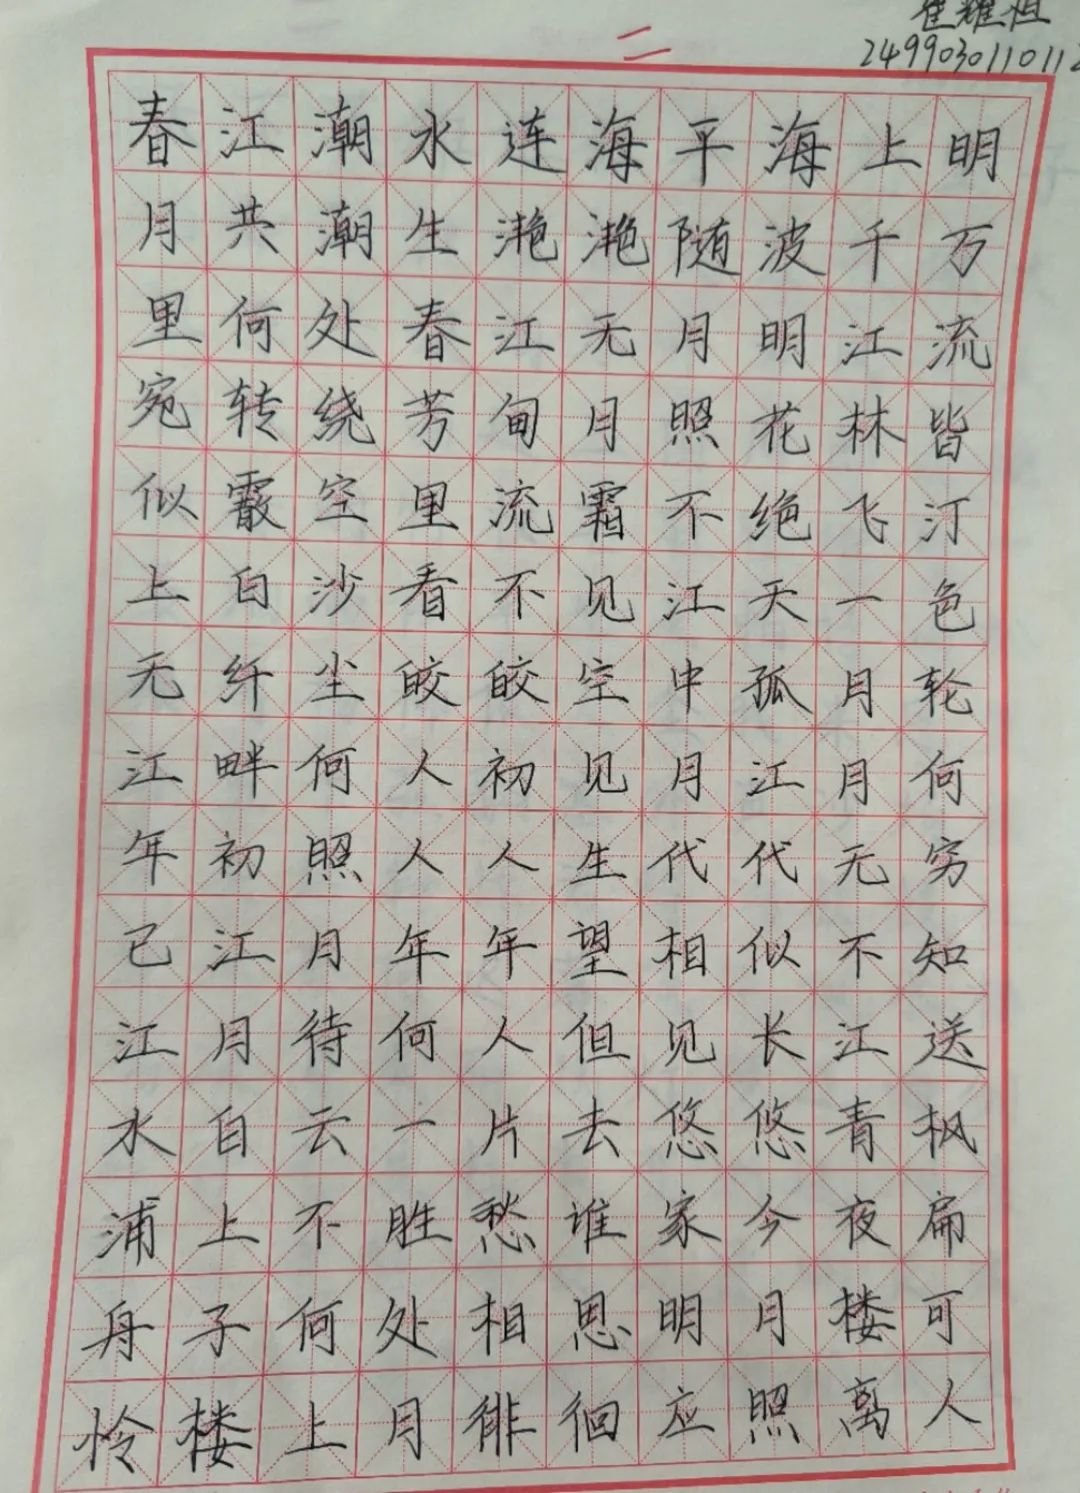 崔耀恒
2499030110112
二
春江潮水连海平海上明
月共潮生滟滟随波千万
里何处春江无月明江流
宛转绕芳甸月照花林皆
似霰空里流霜不绝飞汀
上白沙看不见江天一色
无纤尘皎皎空中孤月轮
江畔何人初见月江月何
年初照人人生代代无穷
已江月年年望相似不知
江月待何人但见长江送
水白云一片去悠悠青枫
浦上不胜愁谁家今夜扁
舟子何处相思明月楼可
怜楼上月徘徊应照离人